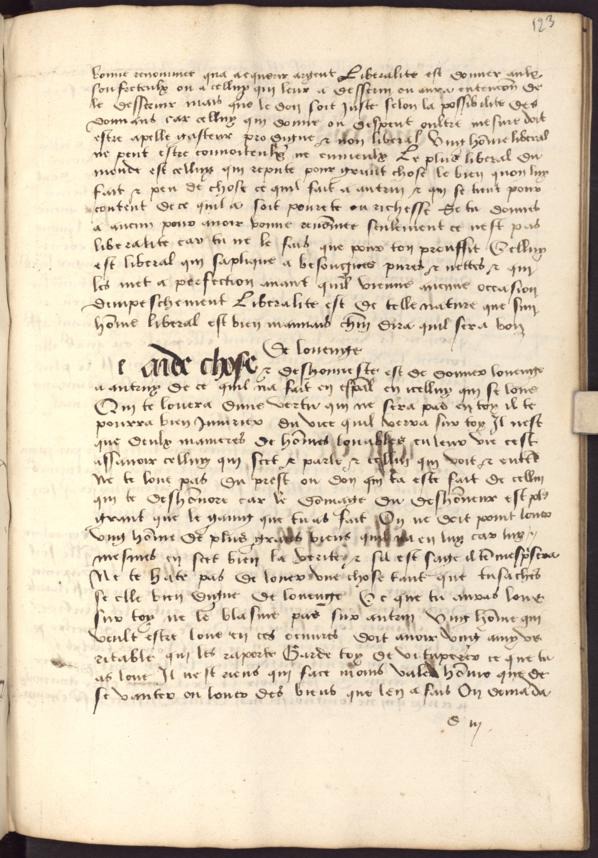 123
bonne renommee qua acquerir argent Liberalite est donner aulx
souffreteulx ou a celluy qui leur a desservi ou aura entencion de
le desservir mais que le don soit juste selon la possibilite des
donnans car celluy qui donne ou despent oultre mesure doit
estre apelle gasteur prodigue & non liberal Ung hõme liberal
ne peut estre convoiteulx ne envieulx Le plus liberal du
monde est celluy qui repute pour grant chose le bien quon luy
fait & peu de chose ce quil fait a autruy & qui se tient pour
content de ce quil a soit povrete ou richesse Se tu donnes
a aucun pour avoir bonne renõmee seulement ce nest pas
liberalite car tu ne le fais que pour ton prouffit Celluy
est liberal qui saplique a besongnes pures & nettes & qui
les met a perfection avant quil vienne aucune occasion
dempeschement Liberalite est de telle nature que sung
hõme liberal est bien mauvais chũn dira quil sera bon
De louenge
l aide chose & deshonneste est de donner louenge
a autruy de ce quil na fait en espãl en icelluy qui se loue
Qui te louera dune vertu qui ne sera pas en toy il te
pourra bien injurier du vice quil verra sur toy Il nest
que deulx manieres de hõmes louables en leur vie cest
assavoir celluy qui scet & parle & celluy qui voit & entẽt
Ne te loue pas du prest ou don qui ta este fait de cellui
qui te deshõnore car le dõmage du deshonneur est pl9
grant que le gaing que tu as fait On ne doit point louer
ung hõme de plus grans biens quil a en luy car luy
mesmes en scet bien la verite & sil est sage il
Ne te haste pas de louer une chose tant que tu saches
se elle bien digne de louenge Ce que tu auras loue
sur toy ne le blasme pas sur autrui Ung hõme qui
veult estre loue en ces oeuvres doit avoir ung amy ve
ritable qui les raporte Garde toy de vituperer ce que tu
as loue Il nest riens qui face moins valoir hõme que de
se vanter ou louer des biens que len a fais On demãda